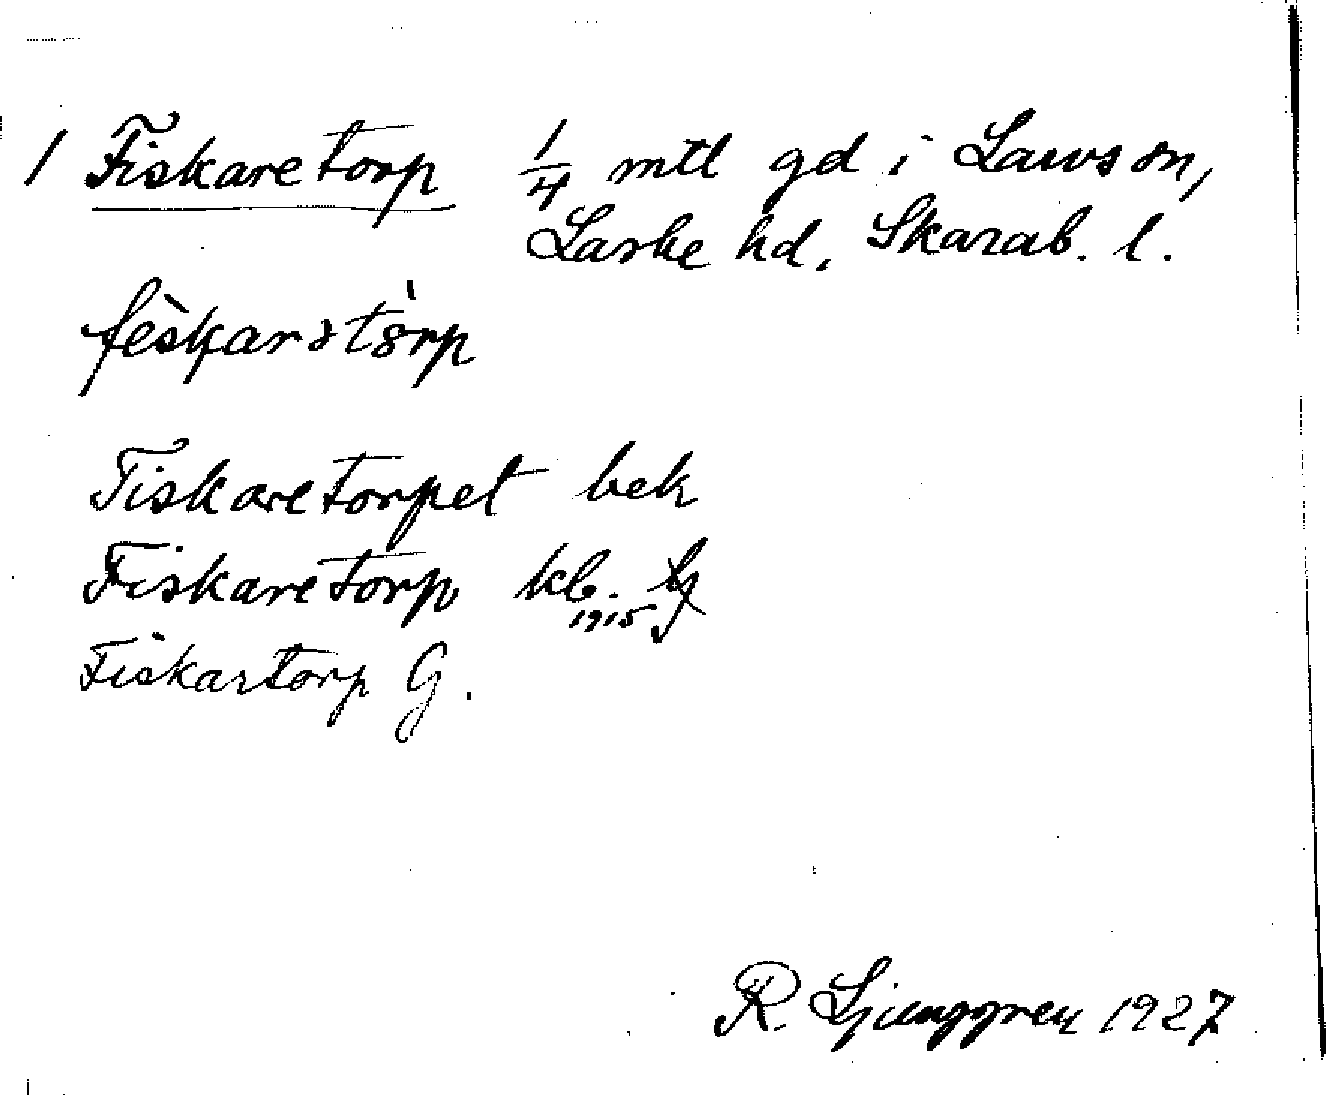 1 Fiskaretorp 1/4 mtl gd i Larvs sn,
Laske hd, Skarab. l.
fèskarətɵ̀rp
Fiskaretorpet bek
Fiskaretorp kb. 1915
Fiskartorp G.
R. Ljunggren 1927